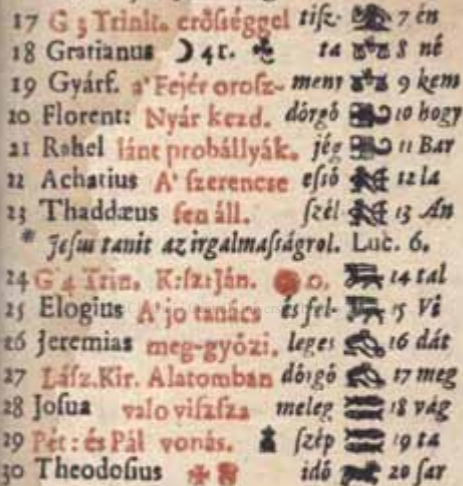 17 G 3 Trinit. erőſséggel tiſz- 7 én
18 Gratianus ☽ 4 r. ta 8 né
19 Gyárf. a' Fejér oroſz- meny 9 kem
20 Florent: Nyár kezd. dőrgő 10 hogy
21 Rahel lánt probállyák. jég 11 Bar
22 Achatius A' ſzerencse eſső 12 la
23 Thaddæus ſen áll. ſzél 13 An
* Jeſus tanit az irgalmaſságrol. Luc. 6.
24 G 4 Trin. K: ſz: Ján. 14 tal
25 Elogius A' jo tanács és fel- 15 Vi
26 Jeremias meg-győzi, leges 16 dát
27 Láſz. Kir. Alatomban dőrgő 17 meg
28 Joſua valo viſzſza meleg 18 vág
29 Pét: és Pál vonás. ſzép 19 ta
30 Theodoſius idő 20 ſar